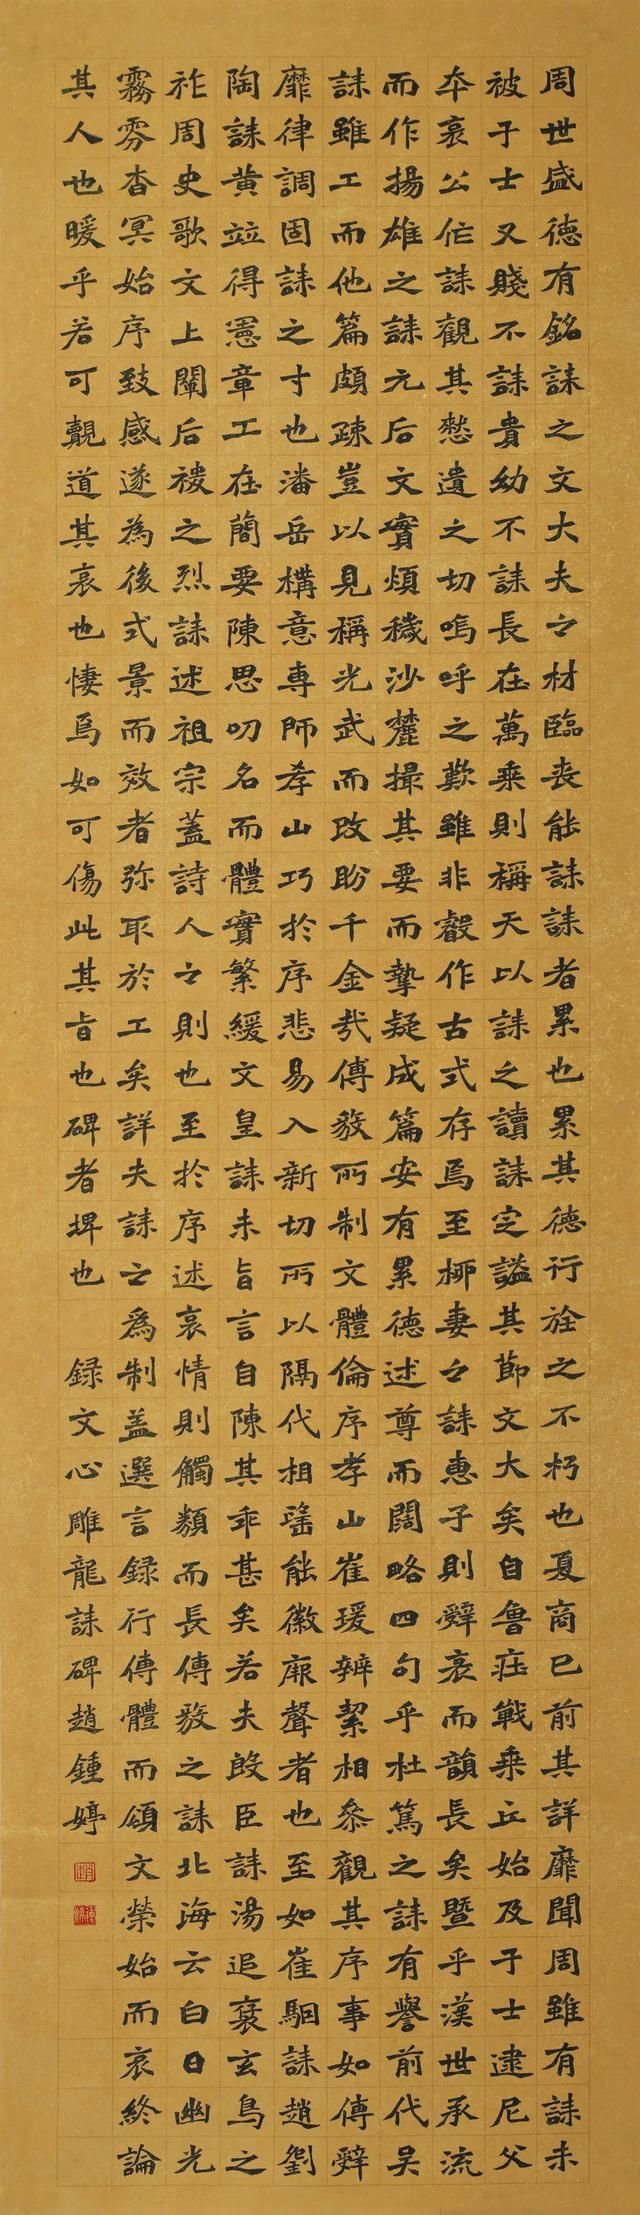 周世盛德有銘誄之文大夫之材臨喪能誄誄者累也累其德行旌之不朽也夏商已前其詳靡聞周雖有誄未
被于士又賤不誄貴幼不誄長在萬乘則稱天以誄之讀誄定謚其節文大矣自魯莊戰乘丘始及于士逮尼父
卒哀公作誄觀其憖遺之切嗚呼之歎雖非叡作古式存焉至柳妻之誄惠子則辭哀而韻長矣暨乎漢世承流
而作揚雄之誄元后文實煩穢沙麓撮其要而摯疑成篇安有累德述尊而闊略四句乎杜篤之誄有譽前代吳
誄雖工而他篇頗疎豈以見稱光武而改盼千金哉傅毅所制文體倫序孝山崔瑗辨絜相參觀其序事如傳辭
靡律調固誄之才也潘岳構意專師孝山巧於序悲易入新切所以隔代相望能徽厥聲者也至如崔駰誄趙劉
陶誄黃竝得憲章工在簡要陳思叨名而體實繁緩文皇誄末旨言自陳其乖甚矣若夫殷臣誄湯追褒玄鳥之
祚周史歌文上闡后稷之烈誄述祖宗蓋詩人之則也至於序述哀情則觸類而長傅毅之誄北海云白日幽光
霧雰杳冥始序致感遂為後式景而效者弥取於工矣詳夫誄之為制盖選言録行傳體而頌文榮始而哀終論
其人也暖乎若可覿道其哀也悽焉如可傷此其旨也碑者埤也
録文心雕龍誄碑趙鍾婷